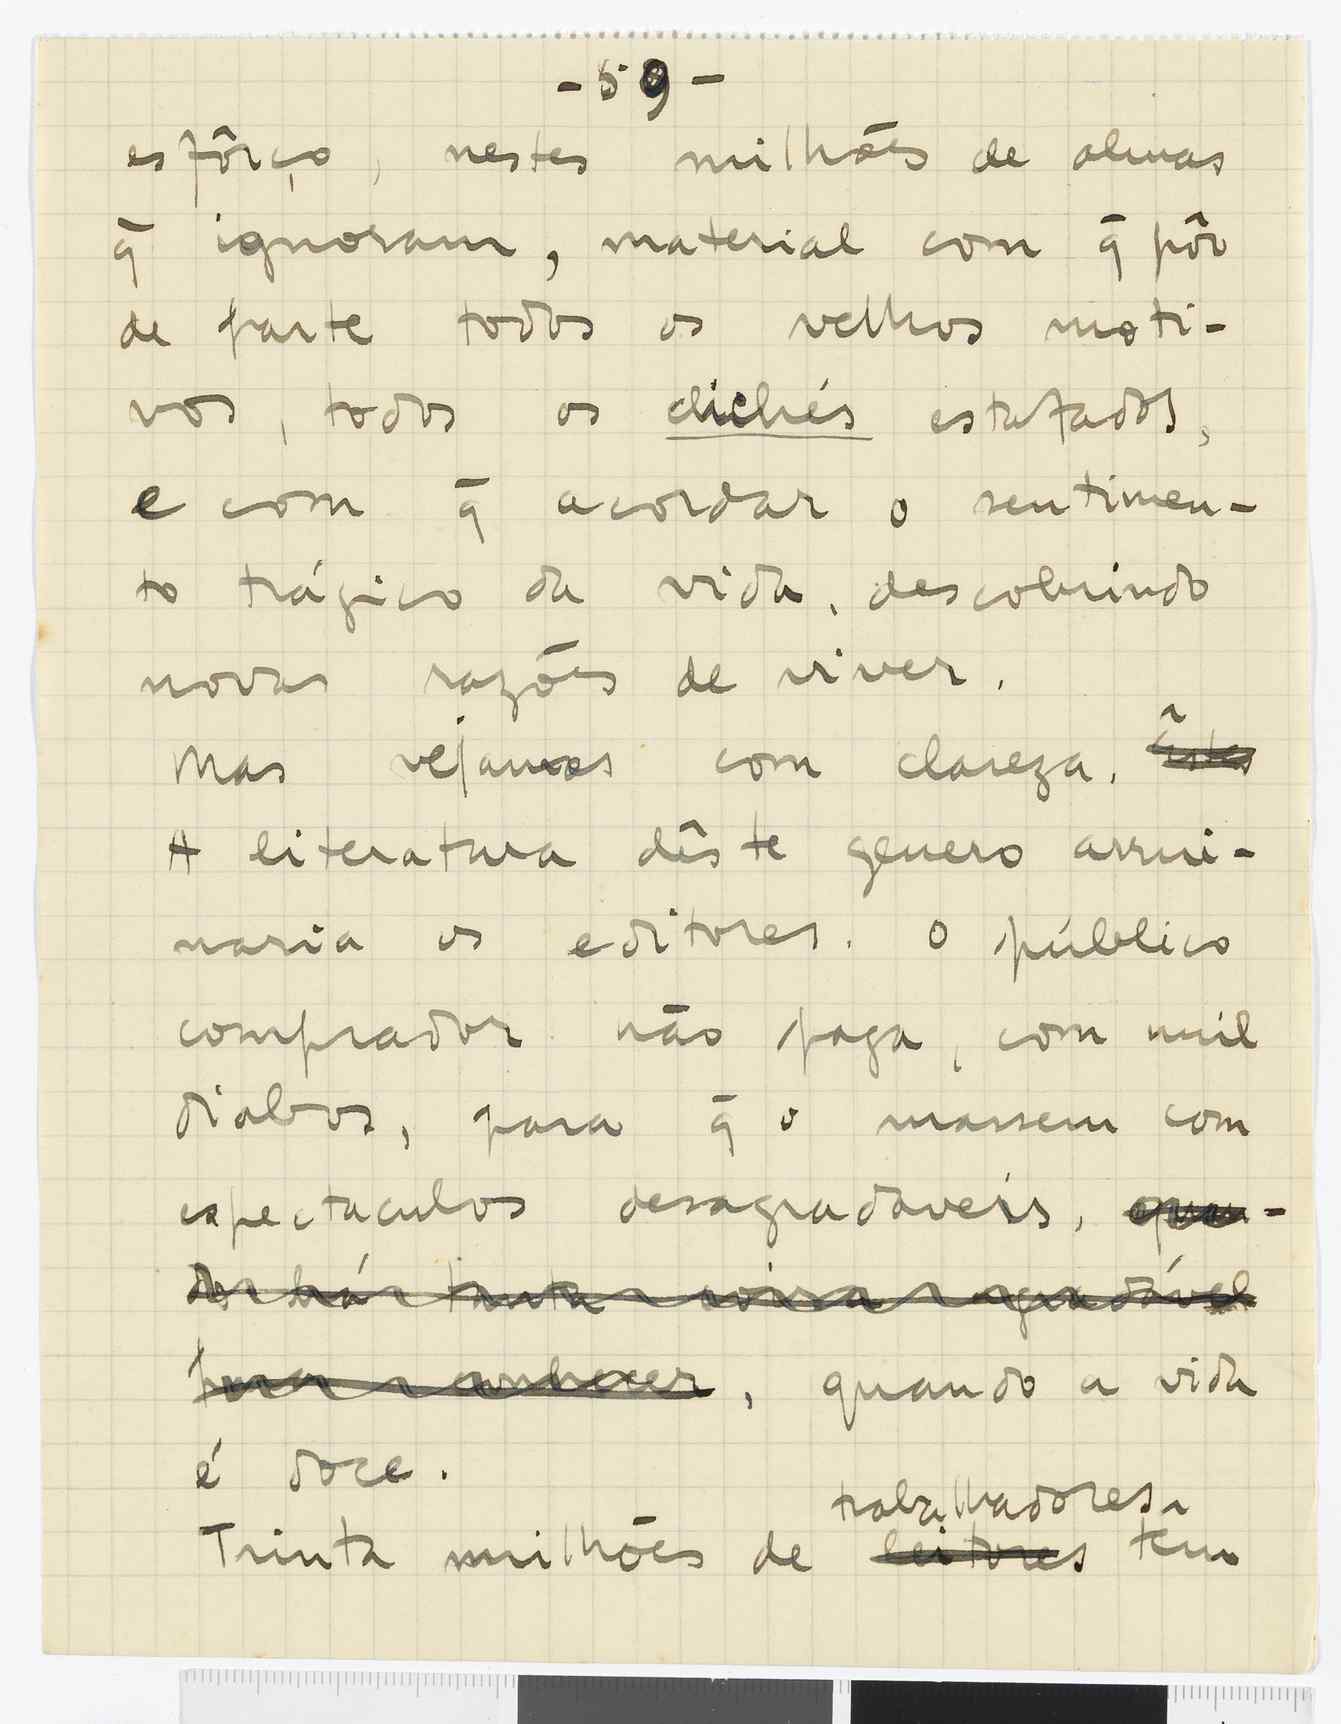 - 59 -
esfôrço, nestes milhões de almas
q̄ ignoram, material com q̄ pôr
de parte todos os velhos moti-
vos, todos os clichés estafados,
e com q̄ acordar o sentimen-
to trágico da vida, descobrindo
novas razões de viver.
Mas vejamos com clareza. Êstes
A literatura dêste genero arrui-
naria os editores. O público
comprador não paga, com mil
diabos, para q̄ o massem com
espectaculos desagradáveis, quan-
do há tanta coisa agradável
para conhecer, quando a vida
é doce.
trabalhadores
Trinta milhões de leitores tem